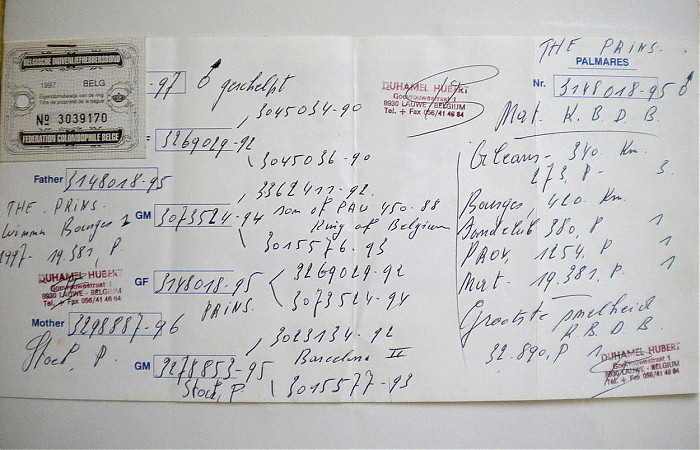 THE PRINS.
PALMARES
Nr. 3148018-95
Nat. K.B.D.B.
Orleans - 340 Km.
273, P - 3.
Bourges, 420 Km.
380, P 1
PROV, 1254, P 1
Nat - 19.381, P. 1
Grootste snelheid
K.B.D.B.
32.890, P 1
BELGISCHE DUIVENLIEFHEBBERSBOND
1997 BELG
Eigendomsbewijs van de ring
Titre de propriété de la bague
Nº 3039170
FEDERATION COLOMBOPHILE BELGE
-97 geschelpt
DUHAMEL HUBERT
8930 LAUWE - BELGIUM
Tel. + Fax 056/41 46 84
3045034-90
3269029-92
3045036-90
Father 3148018-95
THE PRINS.
Winner Bourges
1997- 19.381, P.
3362411-92
GM 3073524-94 son of PAU 450-88
King of Belgium
3015576-93
DUHAMEL HUBERT
8930 LAUWE - BELGIUM
Tel. + Fax 056/41 46 84
GF 3148018-95
PRINS.
3269029-92
3073524-94
Mother 3298887-96
Stock, P.
3023134-92
Barcelona II
GM 3278853-95
Stock, P
3015577-93
DUHAMEL HUBERT
8930 LAUWE - BELGIUM
Tel. + Fax 056/41 46 84